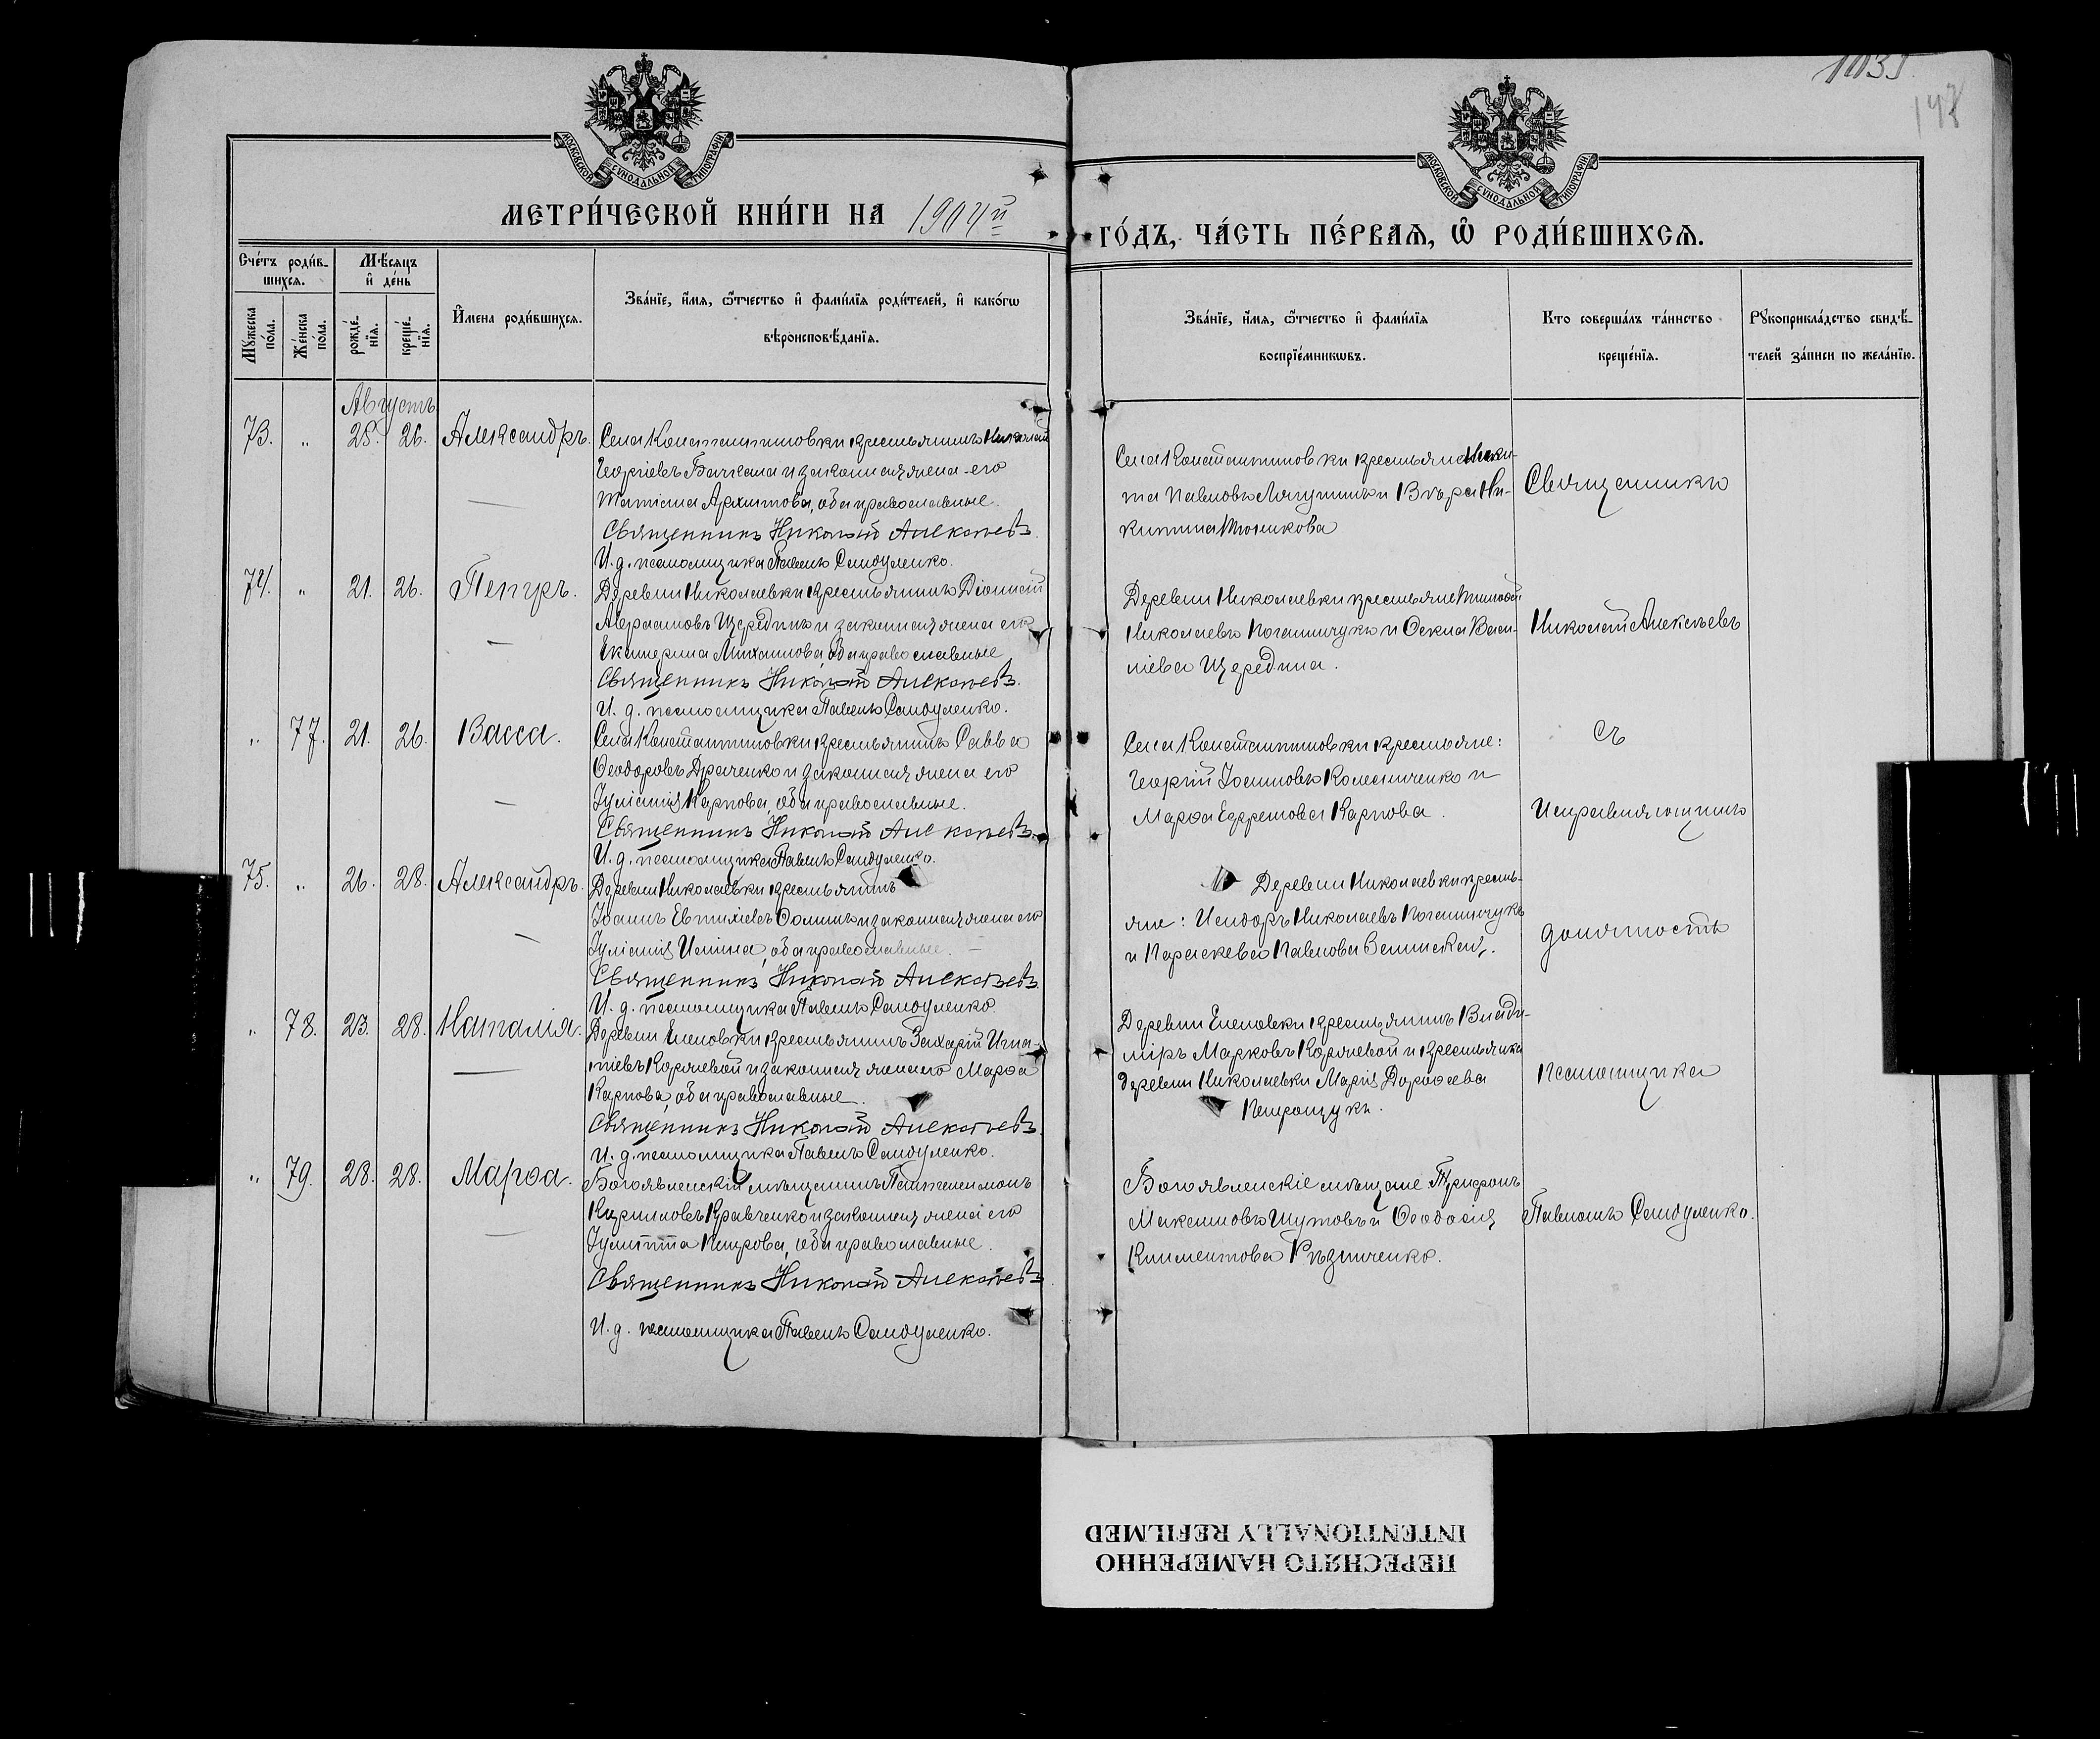 1035
147
МОСКОВСКОЙ СѴНОДАЛЬНОЙ ТИПОГРАФІИ
МОСКОВСКОЙ СѴНОДАЛЬНОЙ ТИПОГРАФІИ
МЕТРИ́ЧЕСКОЙ КНИ́ГИ НА 1904й
ГО́ДЪ, ЧА́СТЬ ПЕ́РВАѦ, Ѡ҆ РОДИ́ВШИХСѦ.
Сче́тъ роди́в-
шихсѧ.
Мѣ́сѧцъ
и҆ де́нь
Мꙋ́жеска по́ла.
Же́нска по́ла.
рожде́-
нїѧ.
креще́-
нїѧ.
И҆мена роди́вшихсѧ.
Зва́нїе, и҆́мѧ, ѻ҆́тчество и҆ фами́лїѧ роди́телей, и҆ како́гѡ
вѣроисповѣ́данїѧ.
Зва́нїе, и҆́мѧ, ѻ҆́тчество и҆ фами́лїѧ
воспрїе́мникѡвъ.
Кто соверша́лъ та́инство
креще́нїѧ.
Рꙋкоприкла́дство свидѣ́-
телей за́писи по жела́нїю.
Августъ
73. " 25. 26. Александръ.
Села Константиновки крестьянинъ Николай
Георгіевъ Бачкала и законная жена его
Татіана Архипова, оба православные.
Священникъ Николай Алексѣевъ.
И. д. псаломщика Павелъ Самдуленко.
Села Константиновки крестьяне Ники-
та Павловъ Лягушинъ и Вѣра Ни-
китина Толикова
Священникъ
74. " 21. 26. Петръ.
Деревни Николаевки крестьянинъ Діонисій
Аврамовъ Щерединъ и законная жена его
Екатерина Михаилова, оба православные
Священникъ Николай Алексѣевъ.
И. д. псаломщика Павелъ Самдуленко.
Деревни Николаевки крестьяне Тимофей
Николаевъ Поганничукъ и Фекла Васи-
ліева Щередина.
Николай Алексѣевъ
" 77. 21. 26. Васса.
Села Константиновки крестьянинъ Савва
Ѳеодоровъ Драченко и законная жена его
Іуліанія Карпова, оба православные.
Священникъ Николай Алексѣевъ.
И. д. псаломщика Павелъ Самдуленко.
Села Константиновки крестьяне:
Георгій Іоанновъ Колесниченко и
Марѳа Ефремова Карпова.
съ
Исправляющимъ
75. " 26. 28. Александръ.
Деревни Николаевки крестьянинъ
Іоаннъ Евтихіевъ Ѳоминъ и законная жена его
Іуліанія Исаіина, оба православные.
Священникъ Николай Алексѣевъ.
И. д. псаломщика Павелъ Самдуленко.
Деревни Николаевки кресть-
яне: Исидоръ Николаевъ Поганничукъ
и Параскева Павлова Велинская.
должность
" 78. 23. 28. Наталія.
Деревни Еленовки крестьянинъ Захарій Игна-
тіевъ Коржевой и законная жена его Марѳа
Карпова, оба православные.
Священникъ Николай Алексѣевъ.
И. д. псаломщика Павелъ Самдуленко.
Деревни Еленовки крестьянинъ Влади-
міръ Марковъ Коржевой и крестьянка
деревни Николаевки Марія Дороѳеева
Петрощукъ.
псаломщика
" 79. 28. 28. Марѳа.
Богоявленскій мѣщанинъ Пантелеимонъ
Кирилловъ Кравченко и законная жена его
Іулитта Петрова, оба православные.
Священникъ Николай Алексѣевъ.
И. д. псаломщика Павелъ Самдуленко.
Богоявленскіе мѣщане Трифонъ
Максимовъ Шутовъ и Ѳеодосія
Климентова Рѣзниченко.
Павломъ Самдуленко.
ПЕРЕСНЯТО НАМЕРЕННО
INTENTIONALLY REFILMED